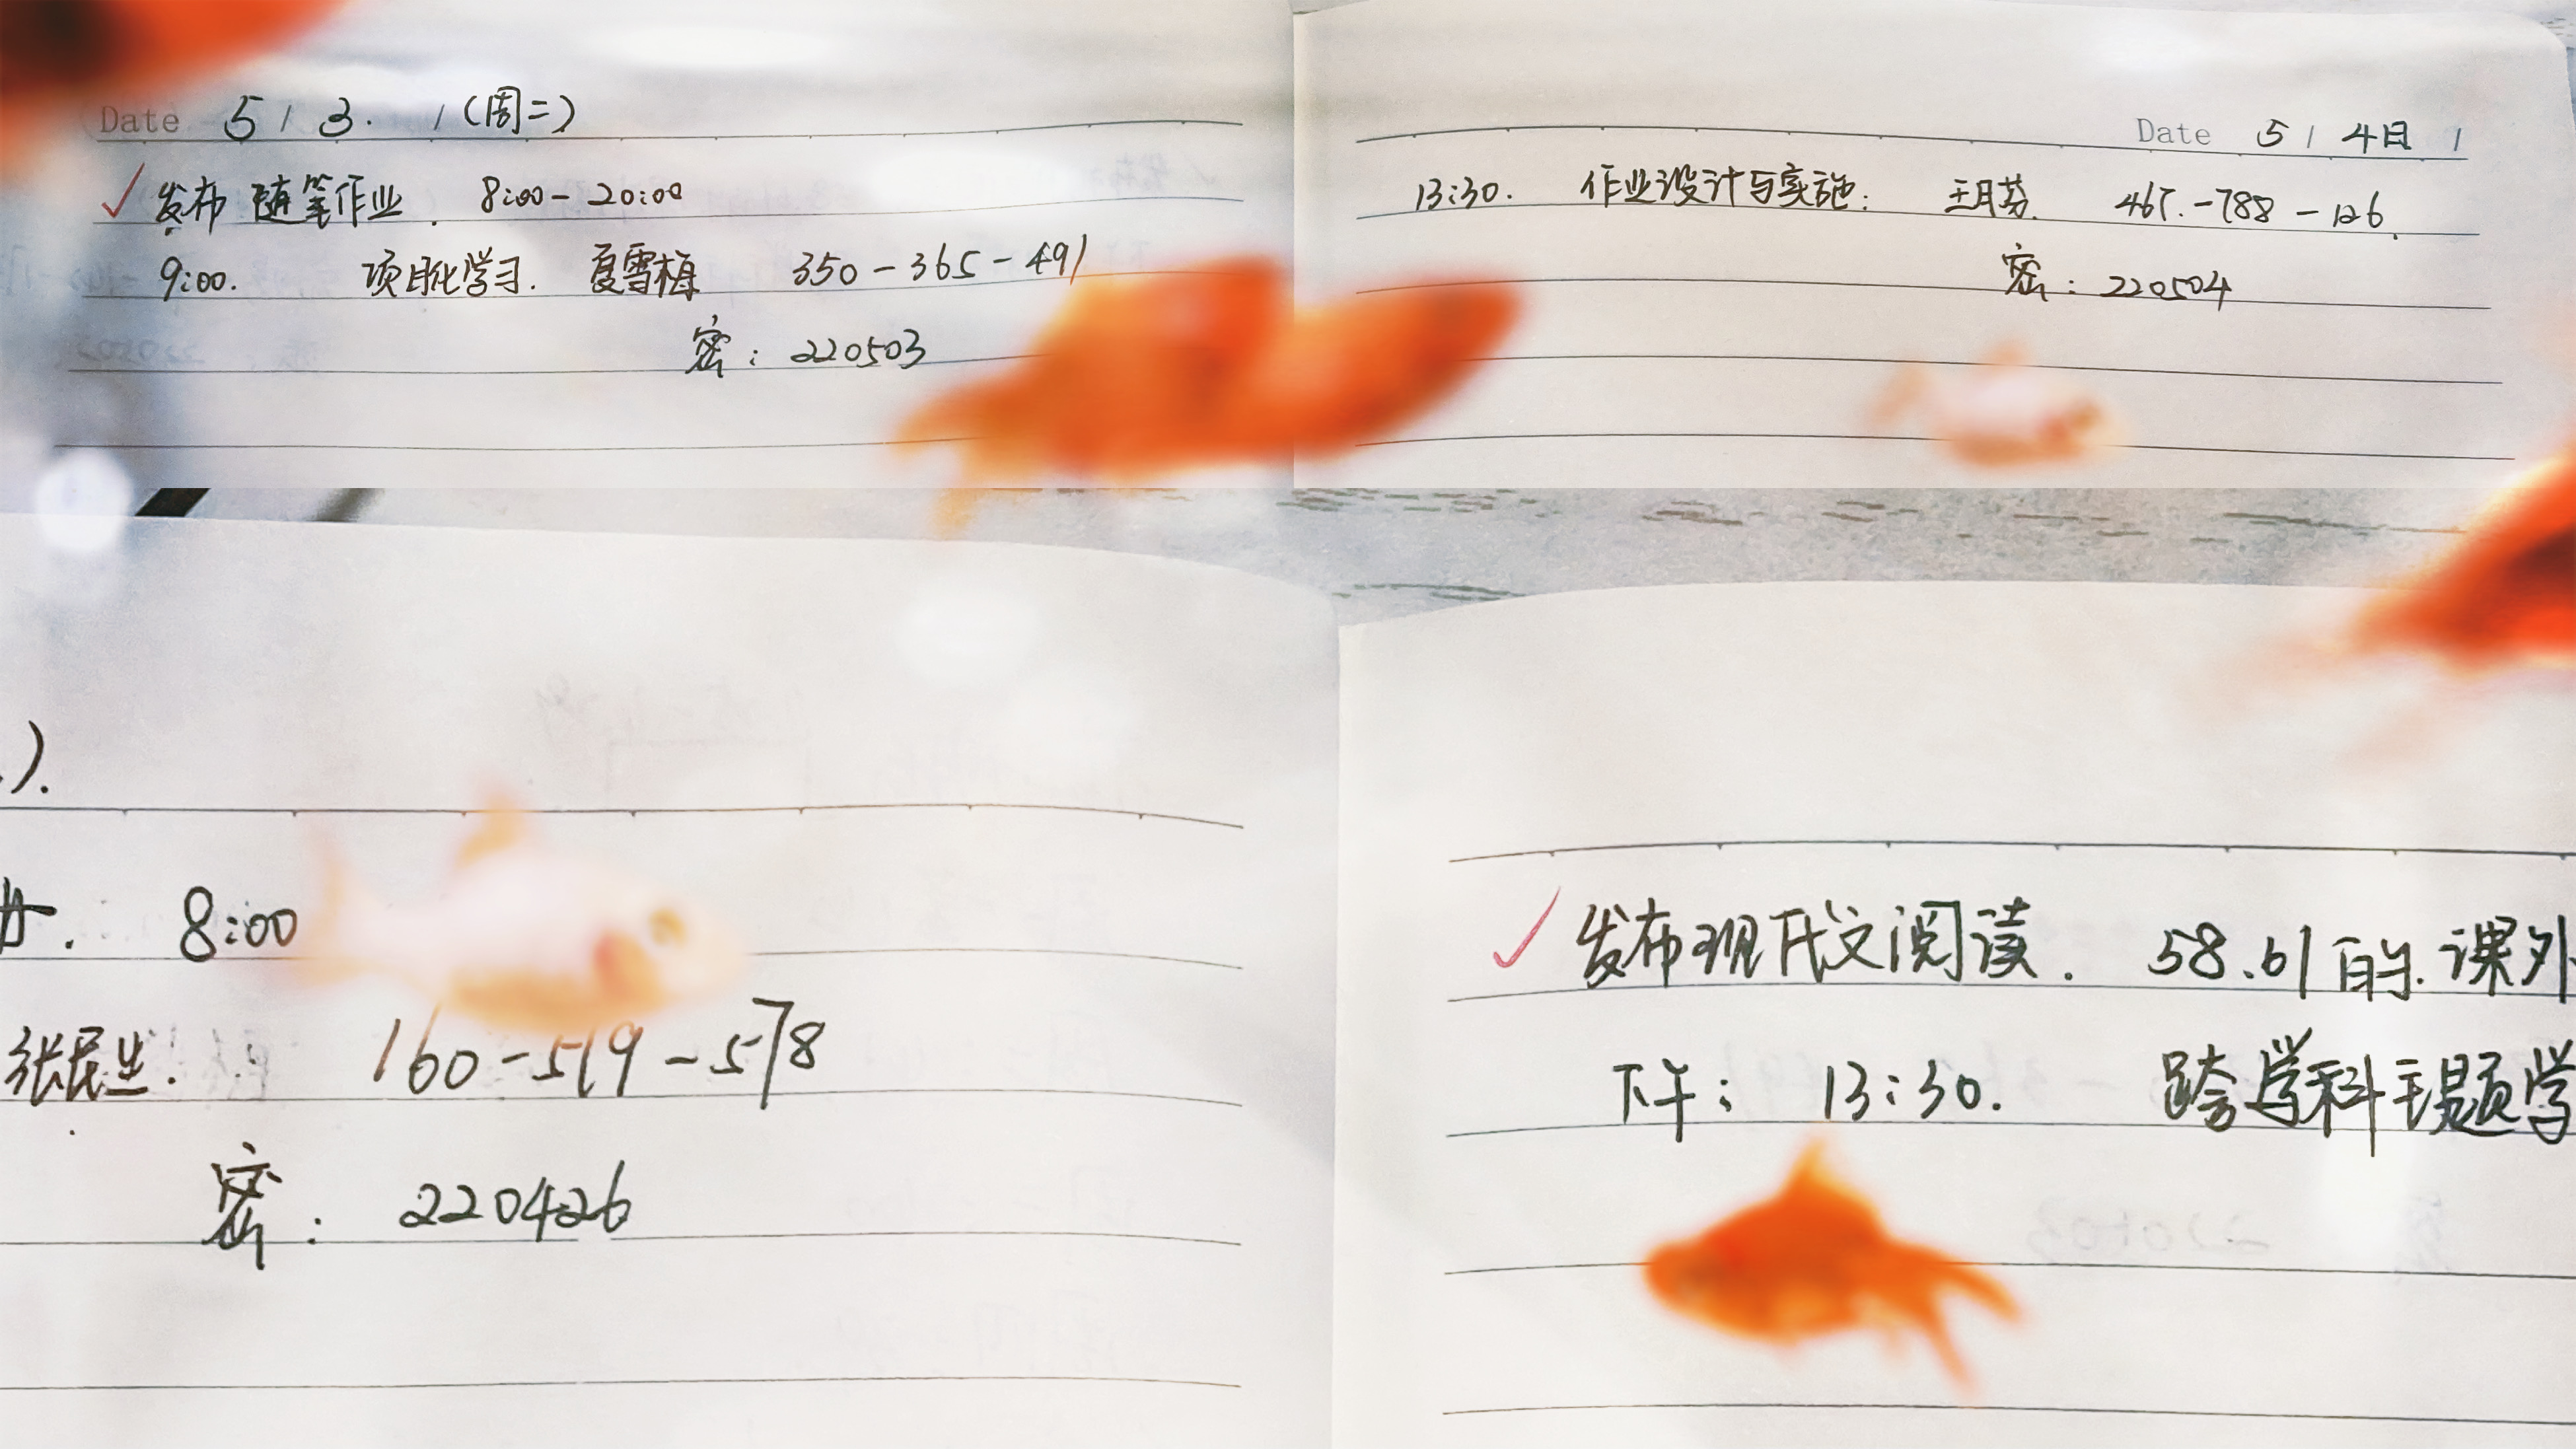 Date 5 / 3. / (周二)
发布 随笔作业. 8:00-20:00
9:00. 项目化学习. 夏雪梅 350-365-491
密: 220503
Date 5 / 4日 /
13:30. 作业设计与实施: 王月芬. 465.-788-126.
密: 220504
).
8:00
张民生. 160-519-578
密: 220426
发布现代文阅读. 58.61 的. 课外
下午: 13:30. 跨学科主题学